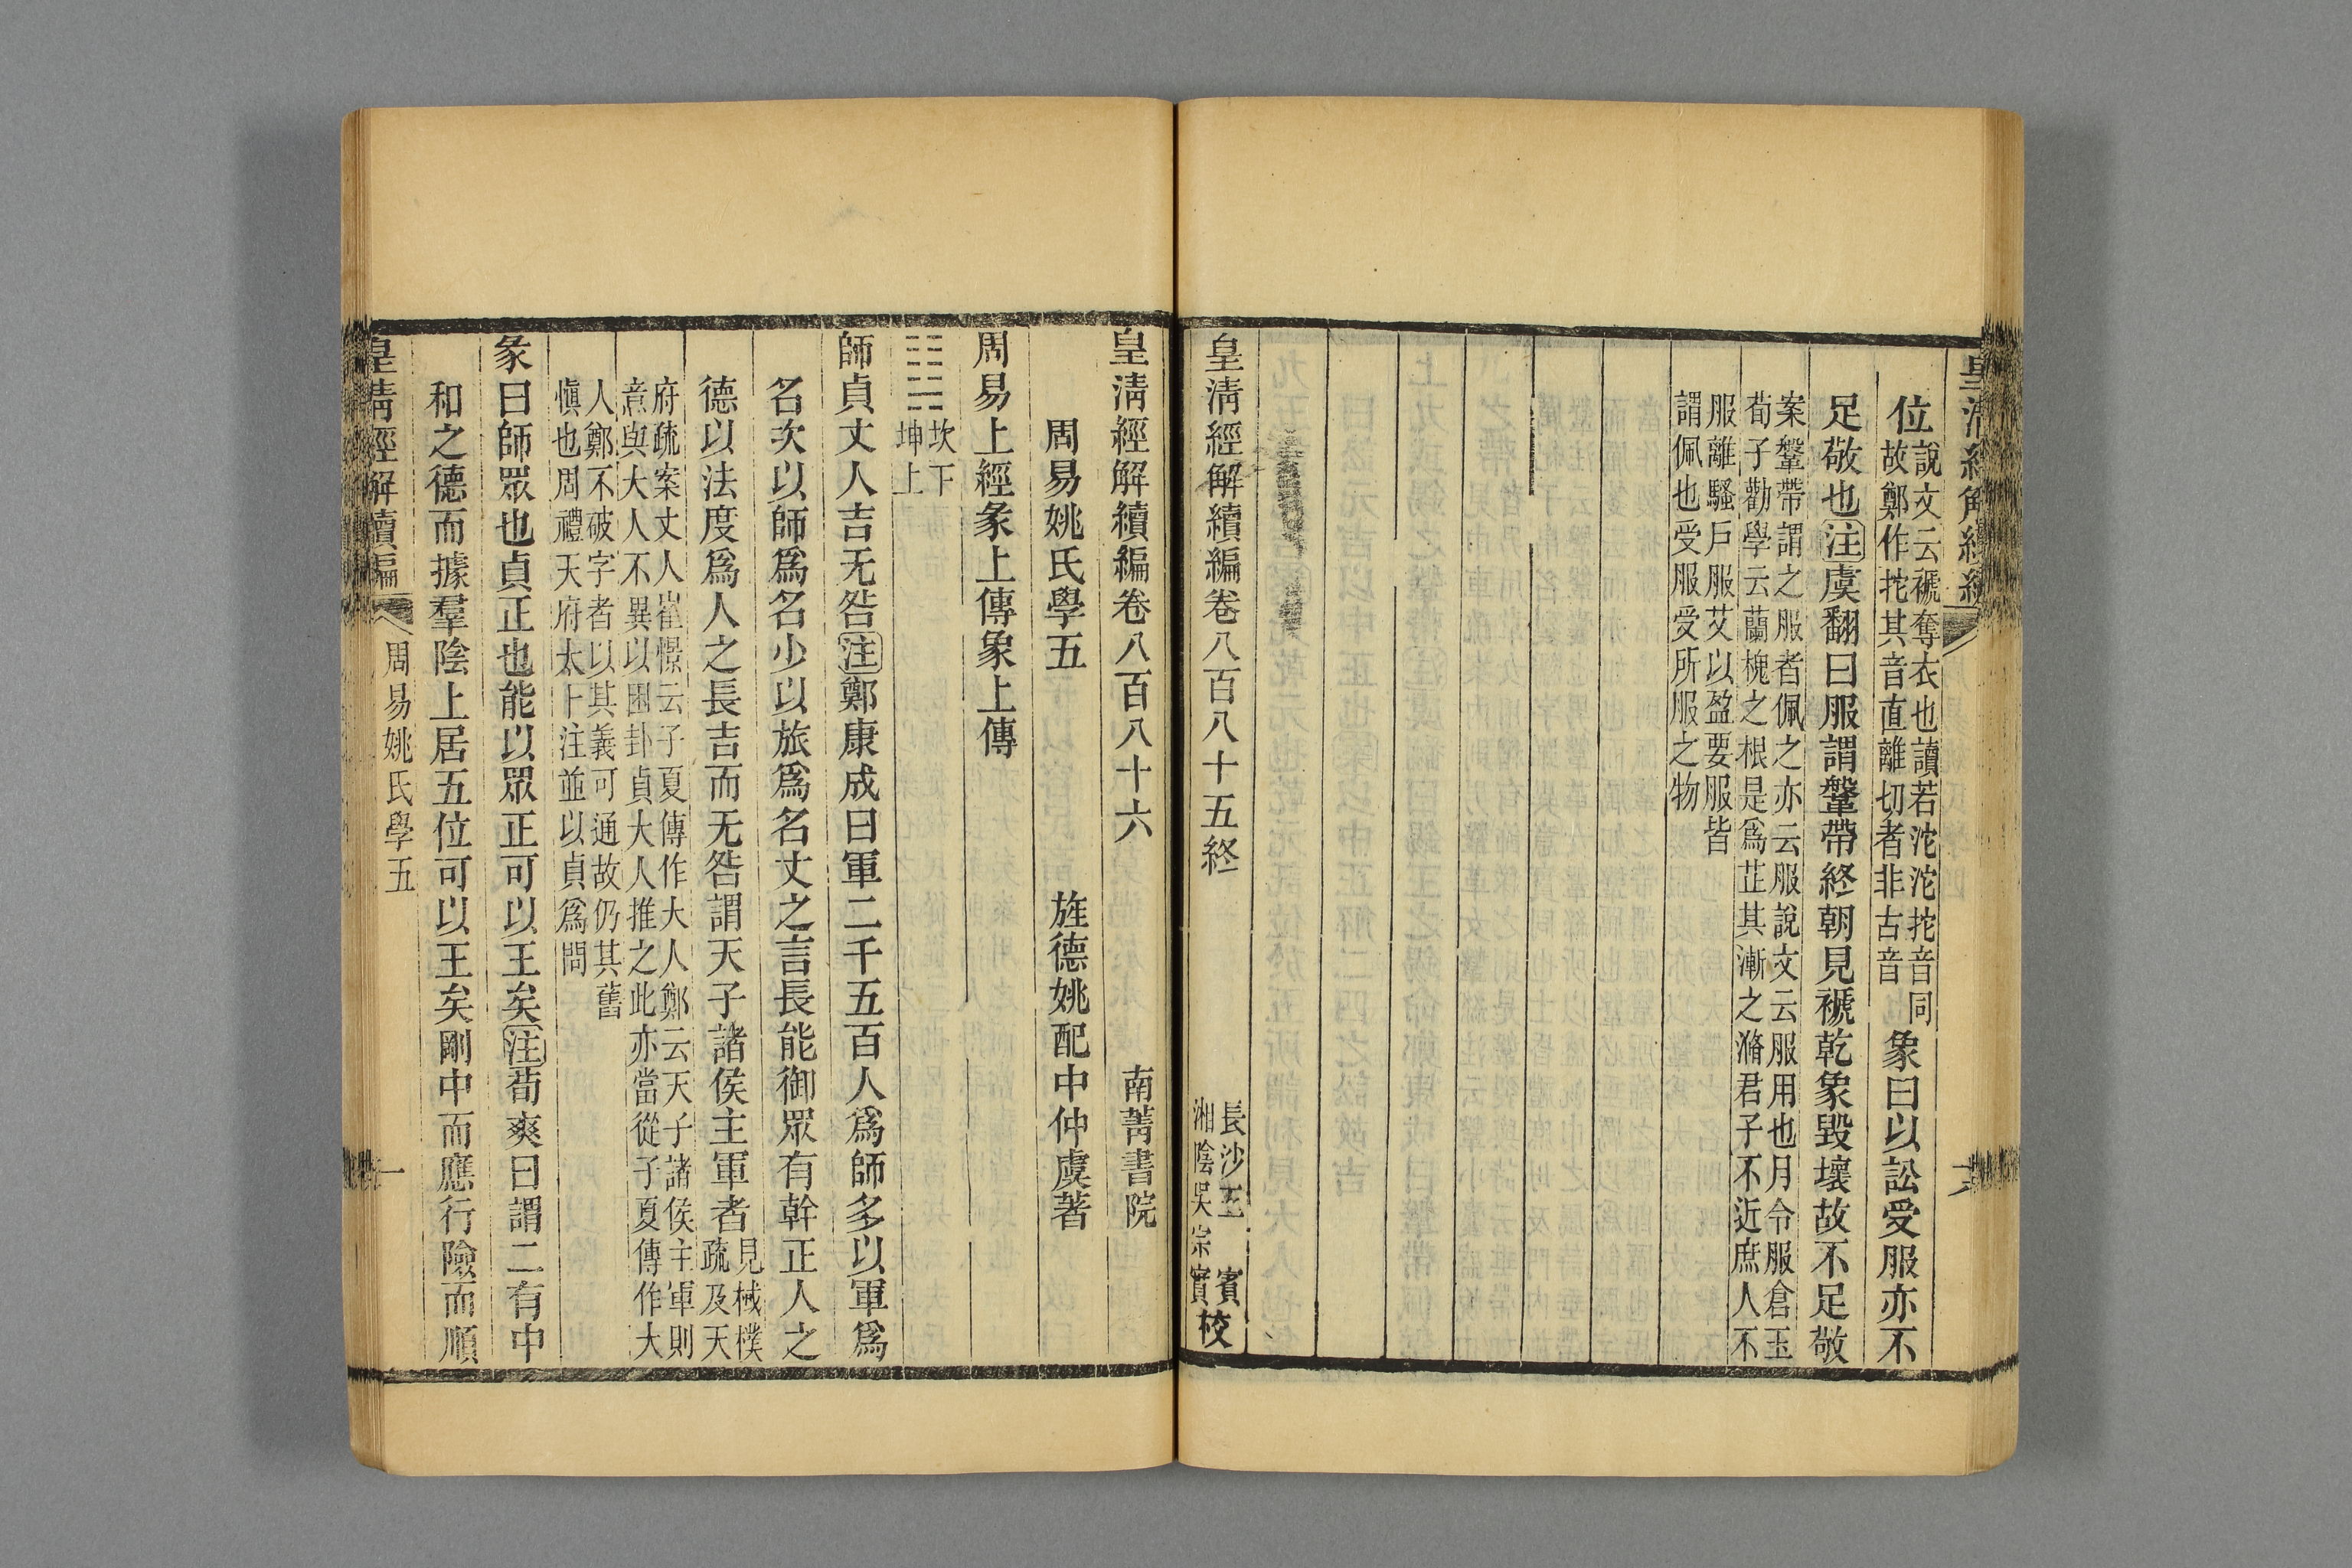 位說文云褫奪衣也讀若沱沱拕音同
故鄭作拕其音直離切者非古音象曰以訟受服亦不
足敬也注虞翻曰服謂鞶帶終朝見褫乾象毀壞故不足敬
案鞶帶謂之服者佩之亦云服說文云服用也月令服倉玉
荀子勸學云蘭槐之根是爲芷其漸之滫君子不近庶人不
服離騷戸服艾以盈要服皆
謂佩也受服受所服之物
皇淸經解續編卷八百八十五終
長沙王 賓
湘陰吳宗實校
皇淸經解續編卷八百八十六
南菁書院
周易姚氏學五
旌德姚配中仲虞著
周易上經彖上傳象上傳
坎下
坤上
師貞丈人吉无咎注鄭康成曰軍二千五百人爲師多以軍爲
名次以師爲名少以旅爲名丈之言長能御眾有幹正人之
德以法度爲人之長吉而无咎謂天子諸侯主軍者見棫樸
疏及天
府疏案丈人崔憬云子夏傳作大人鄭云天子諸侯主軍則
意與大人不異以困卦貞大人推之此亦當從子夏傳作大
人鄭不破字者以其義可通故仍其舊
愼也周禮天府太卜注並以貞爲問
彖曰師眾也貞正也能以眾正可以王矣注荀爽曰謂二有中
和之德而據羣陰上居五位可以王矣剛中而應行險而順
皇淸經解續編
周易姚氏學五
一